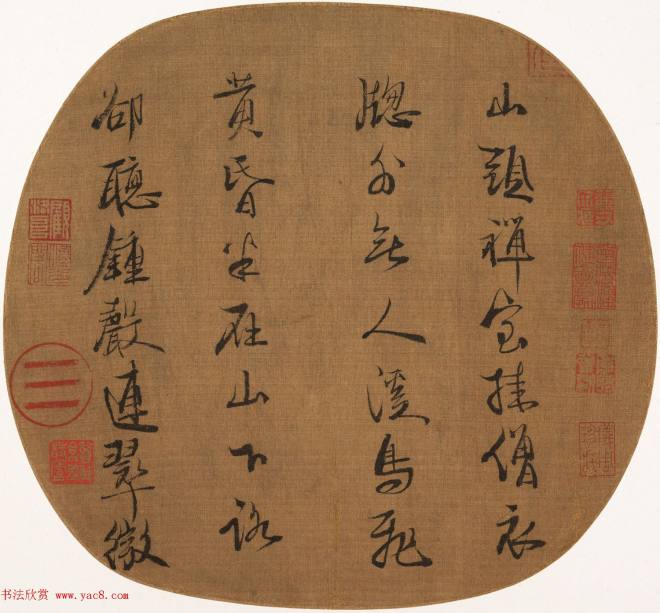 山頭禪室挂僧衣
牕外無人溪鳥飛
黄昏半在山下路
卻聽鍾聲連翠微
书法欣赏 www.yac8.com